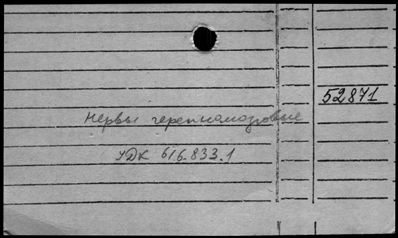 52871
Нервы черепномозговые
УДК 616.833.1